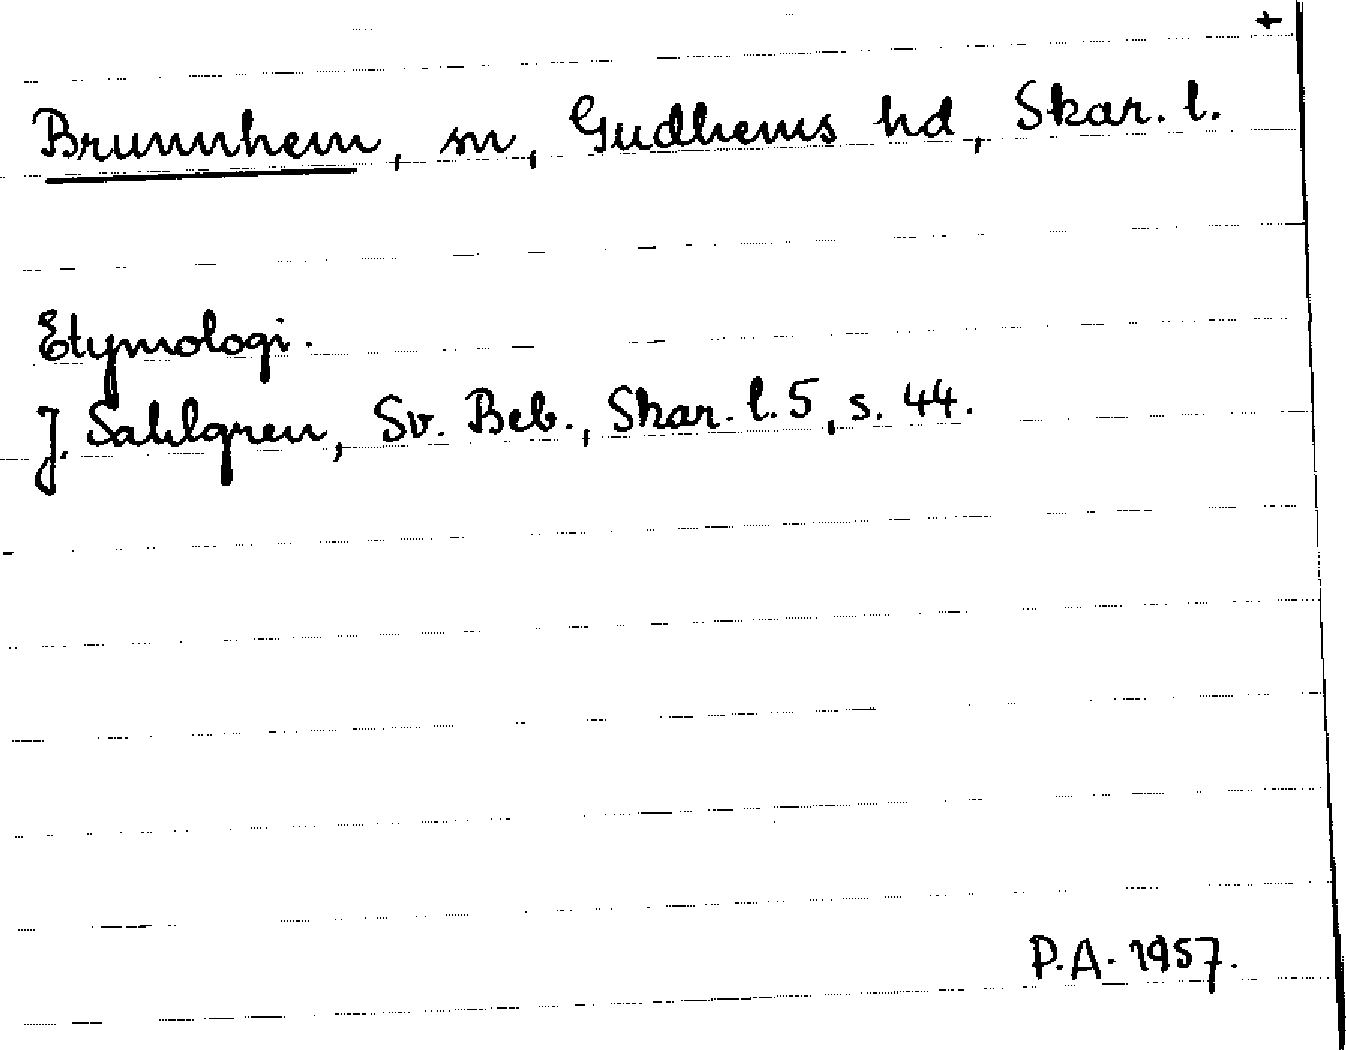 +
Brunnhem, sn, Gudhems hd, Skar. l.
Etymologi.
J. Sahlgren, Sv. Beb., Skar. l. 5, s. 44.
P.A. 1957.